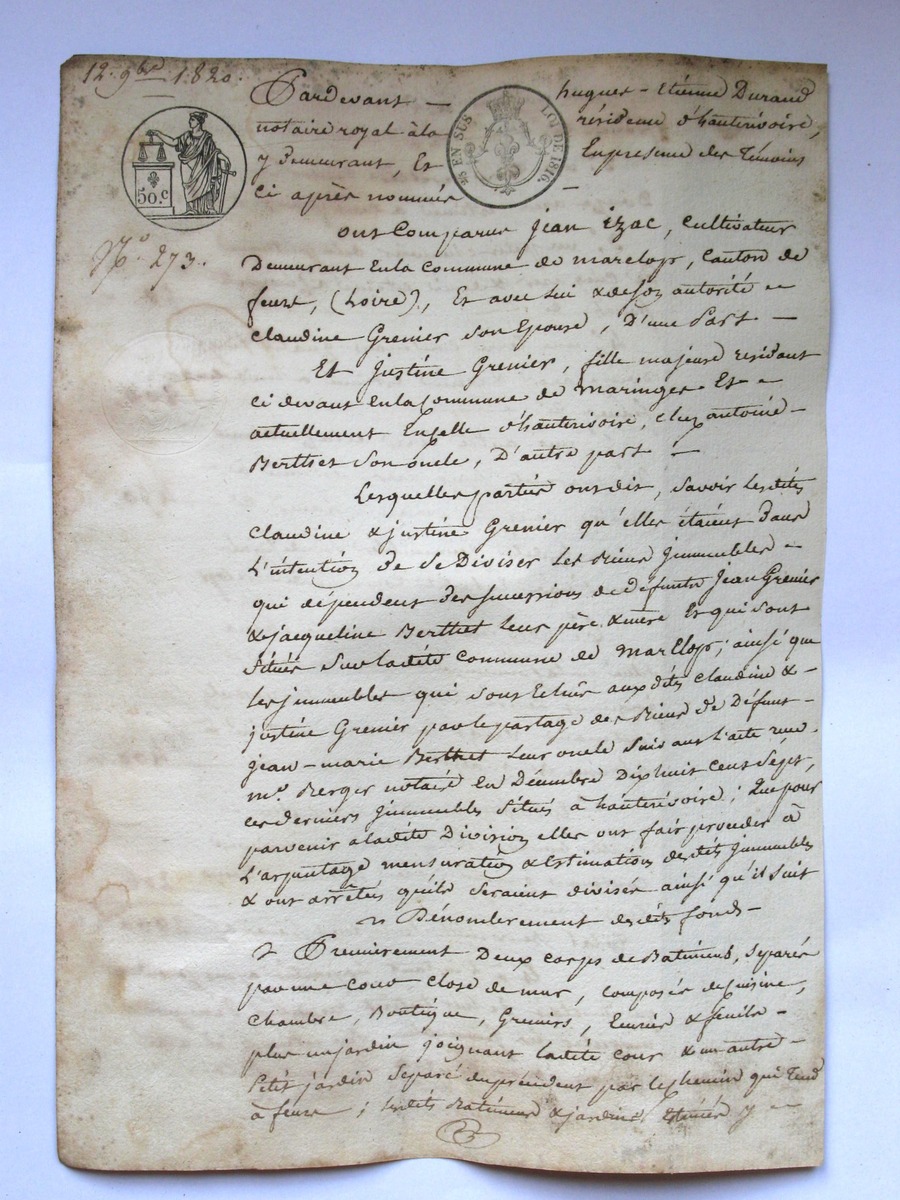 12. 9bre 1820.
Pardevant hugues-Etienne Durand
notaire royal à la résidence d'hauterivoire,
y Demeurant, Et En presence des Témoins
Ci après nommés
50.c
EN SUS
LOI DE 1816.
N.o 273.
ont Comparus Jean Izac, Cultivateur
Demeurant Enla Commune de marclop, Canton de
feurs, (Loire), Et avec lui & de son autorité
Claudine Grenier Son Epouse, D'une Part
Et Justine Grenier, fille majeure résidant
Ci devant Enla Commune de maringes Et
actuellement En celle d'hauterivoire, chez antoine
Berthet Son oncle, D'autre part
Lesquelles parties ont dit, Savoir Lesdites
Claudine & justine Grenier qu'elles étaient Dans
L'intention de Se Diviser Les Biens Immeubles
qui dépendent des successions de défunts Jean Grenier
& jacqueline Berthet Leurs père & mère Et qui sont
Situés Sur ladite Commune de marclop; ainsi que
les immeubles qui sont Echus auxdites Claudine &
justine Grenier par le partage des Biens de Défunt
jean-marie Berthet Leur oncle Suivant L'acte reçu
m.e Berger notaire en Décembre Dixhuit Cent Sept,
ces derniers Immeubles Situés à hauterivoire; Que pour
parvenir à ladite Division elles ont fait procéder à
L'arpentage mensuration & Estimation desdits Immeubles
& ont arrêtés qu'ils seraient divisés ainsi qu'il Suit
Dénombrement desdits fonds
Premièrement Deux corps de Batiments, Séparés
par une Cour Close de mur, Composés de Cuisine,
Chambre, Boutique, Greniers, Ecuries & fenils
plus un jardin joignant ladite Cour & un autre
Petit jardin Séparé du précédent par le Chemin qui Tend
à feurs; lesdits Batiments & jardins Situés y